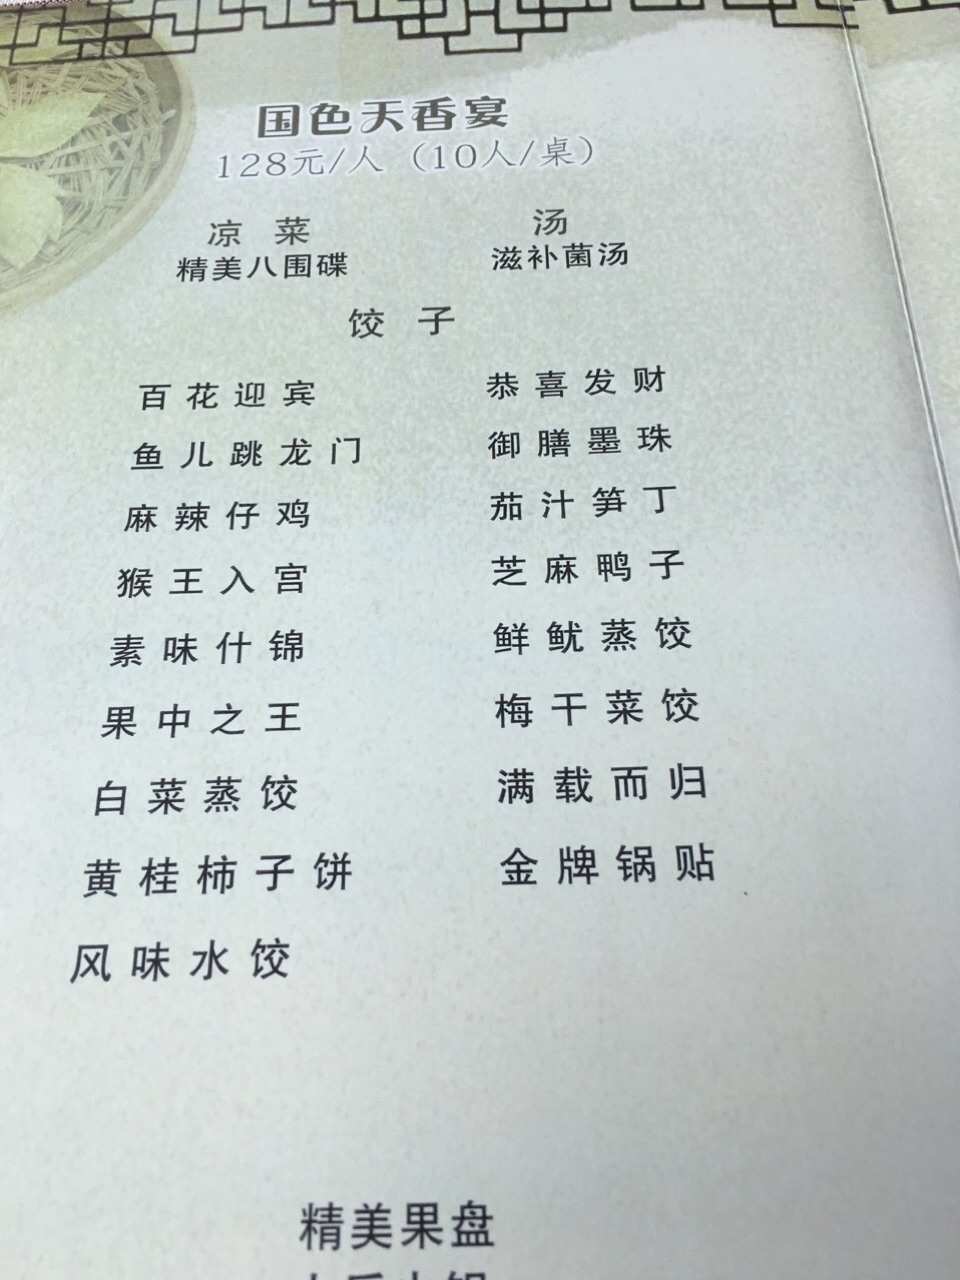 国色天香宴
128元/人（10人/桌）
凉 菜 汤
精美八围碟 滋补菌汤
饺 子
百花迎宾 恭喜发财
鱼儿跳龙门 御膳墨珠
麻辣仔鸡 茄汁笋丁
猴王入宫 芝麻鸭子
素味什锦 鲜鱿蒸饺
果中之王 梅干菜饺
白菜蒸饺 满载而归
黄桂柿子饼 金牌锅贴
风味水饺
精美果盘